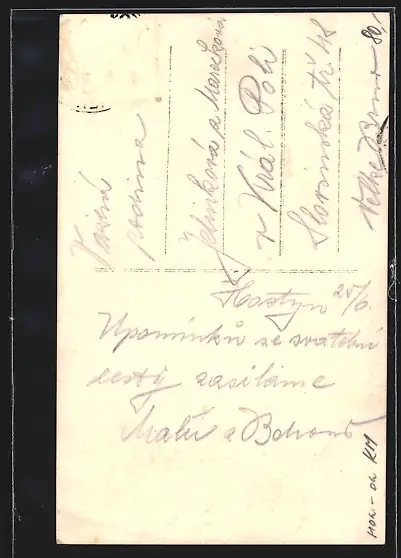 Vážená
rodina
Jelínková a Marečková
v Král. Poli
Slovinská tř. 48
Velké Brno
Hostýn 25/6.
Upomínku se svatební
cesty zasíláme
Malú a Bohouš
80,-
HOK - OK KM